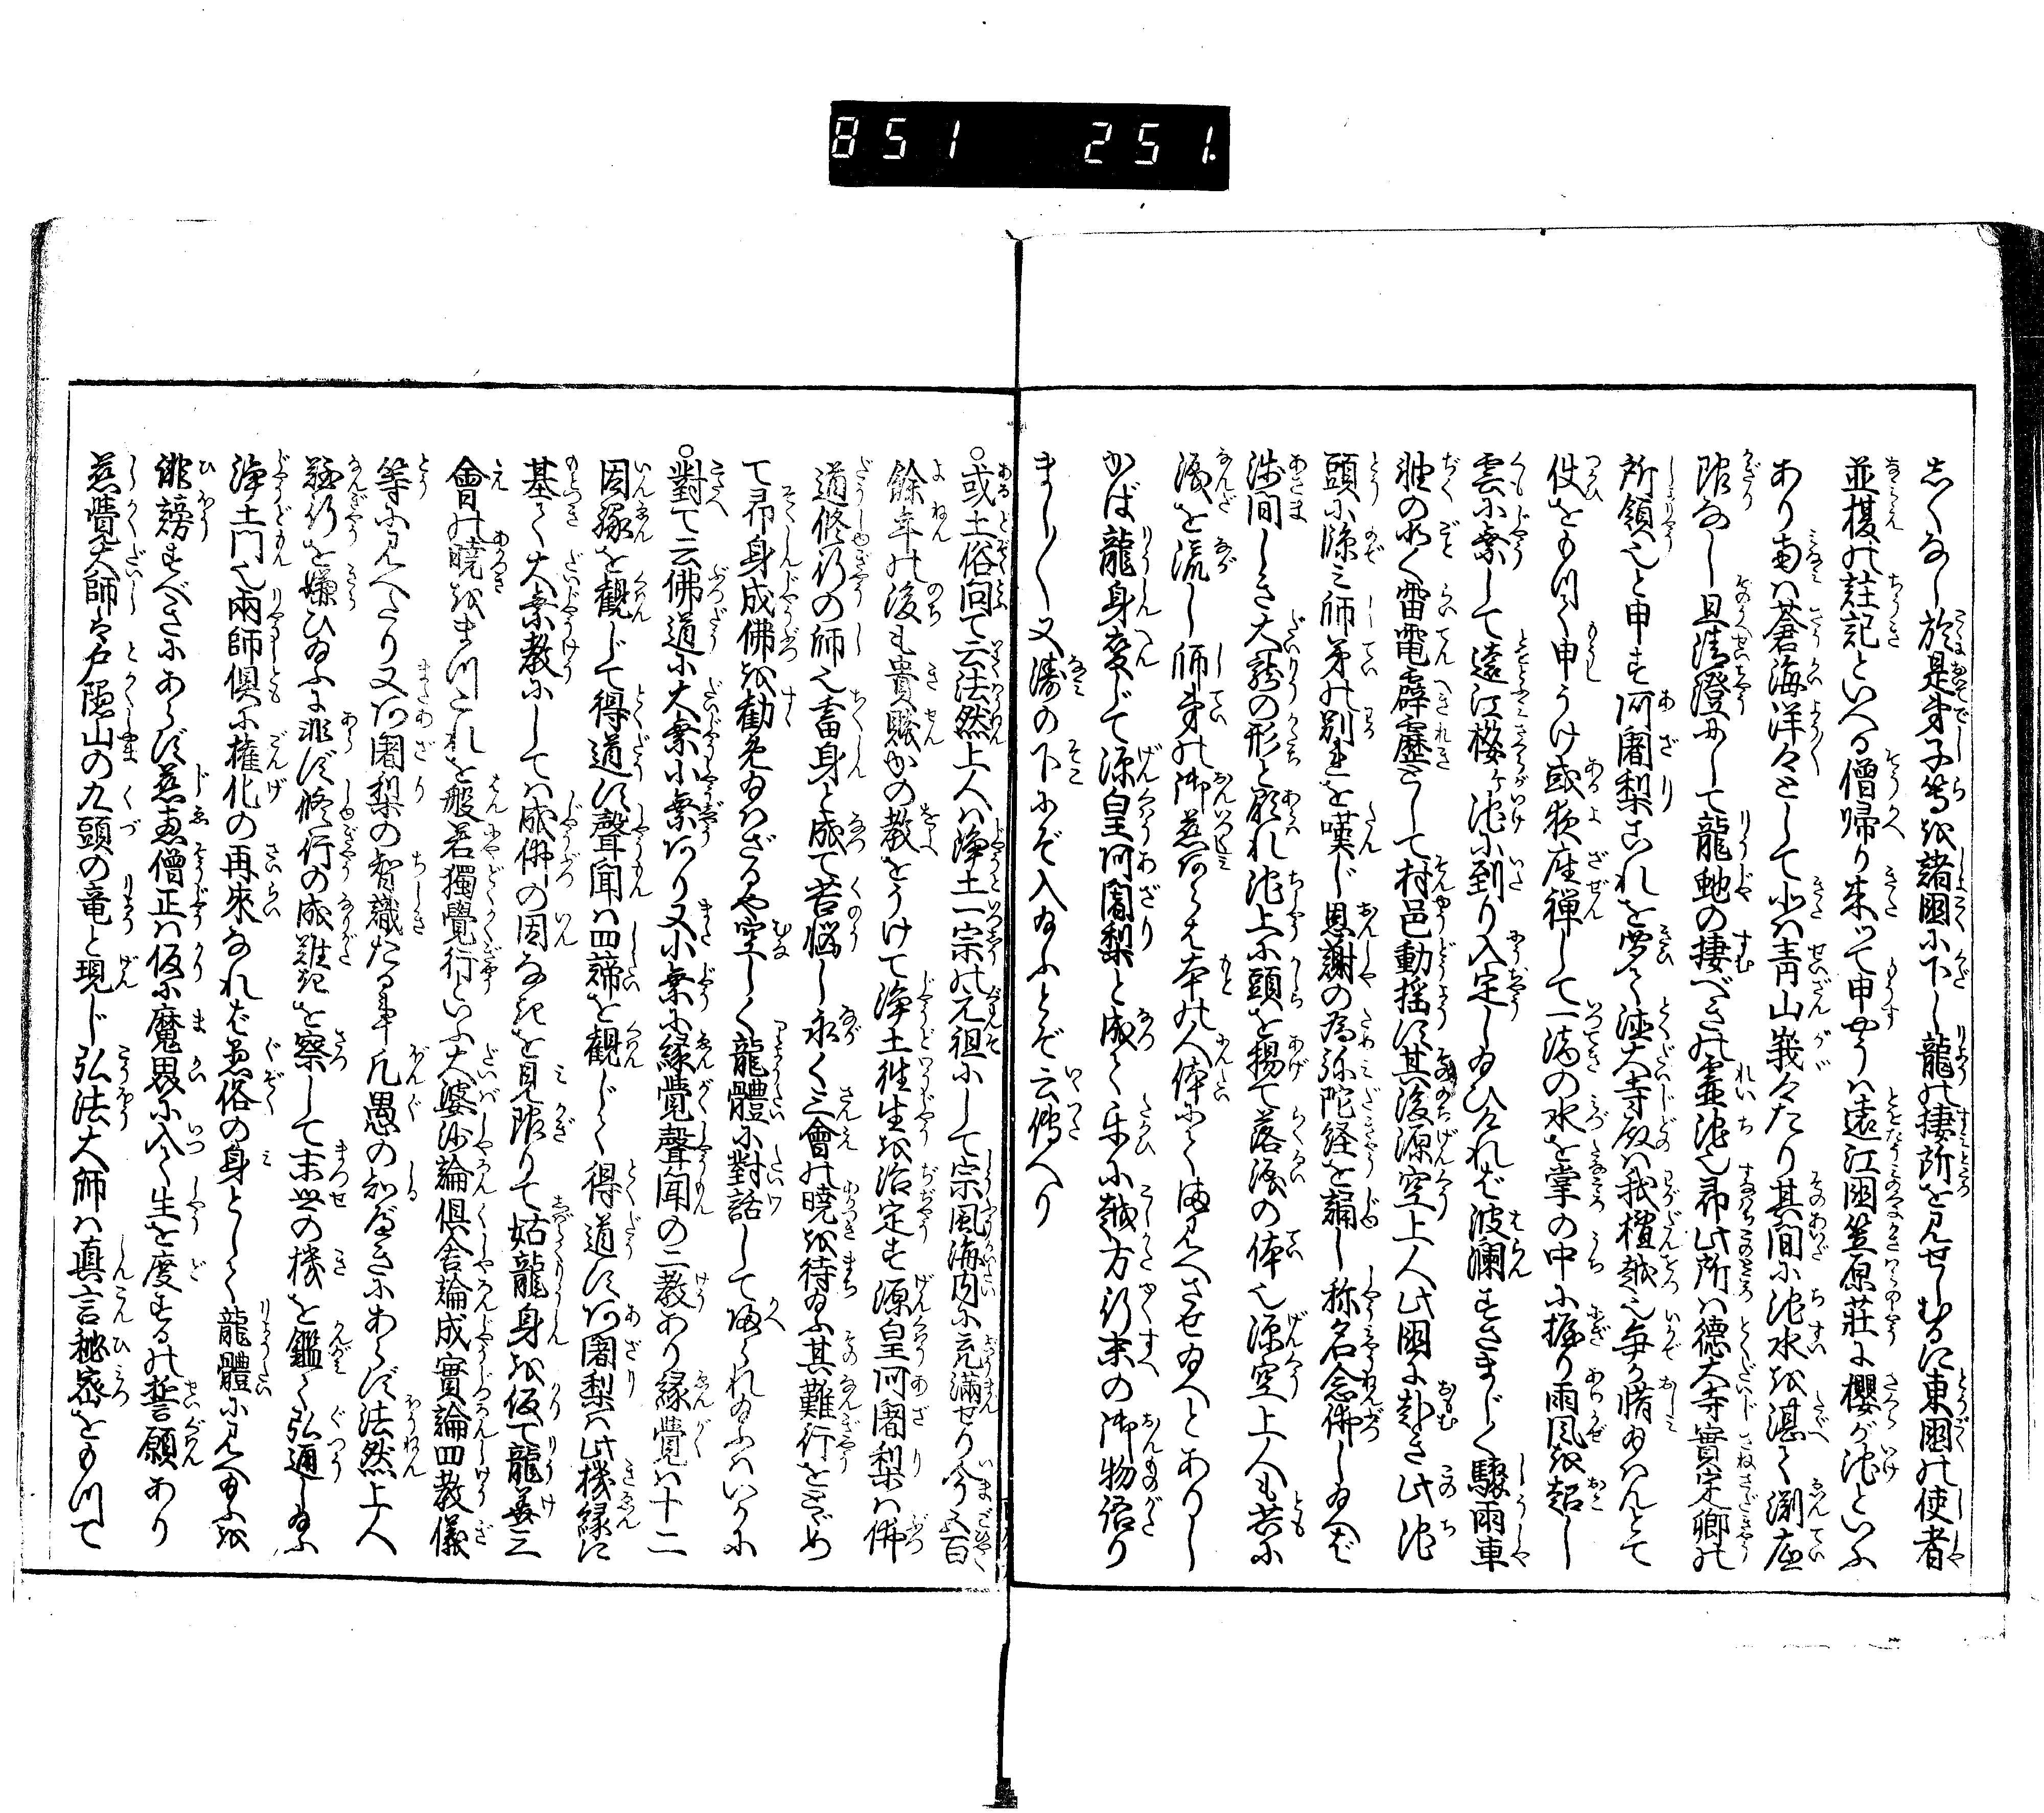 851 251.
志くなし於是弟子等を諸国に下し龍の棲所を見せしむるに東国の使者
並榎の註記といへる僧帰り来つて申やうは遠江国笠原荘に櫻が池といふ
あり南は蒼海洋々として北は青山峩々たり其間に池水を湛て渕底
限なし且清澄にして龍虵の棲べきの霊池也即此所は徳大寺實定卿の
所領也と申す阿闍梨これを聞て徳大寺殿は我檀越也争か惜給はんとて
使をもつて申うけ或夜座禅して一滴の水を掌の中に握り雨風を起し
雲に乗して遠江櫻が池に到り入定し給ひければ波瀾すさまじく驟雨車
軸の如く雷電霹靂として村邑動揺す其後源空上人此国に赴き此池
頭に臨み師弟の別れを嘆じ恩謝の為弥陀経を誦し称名念佛し給へば
浅間しき大龍の形と顕れ池上に頭を揚て落涙の体也源空上人も共に
涙を流し師弟の御慈あらは本の人体にて漁見へさせ給へとありし
かば龍身変じて源皇阿闍梨と成て互に越方行末の御物語り
まし〱又濤の下にぞ入給ふとぞ云傳へり
○或土俗問て云法然上人は浄土一宗の元祖にして宗風海内に充満せり今五百
餘年の後も貴賤かの教をうけて浄土往生を治定す源皇阿闍梨は佛
道修行の師也畜身と成て苦悩し永く三會の暁を待給ふ其難行をとゞめ
て即身成佛を勧め給はざるや空しく龍體に對話して帰られ給ふはいかに
○對て云佛道に大乗小乗あり又小乗に縁覺聲聞の二教あり縁覺は十二
因縁を観じて得道す聲聞は四諦を観じて得道す阿闍梨は此機縁に
基て大乗教にしては成佛の因なきを見限りて姑龍身を仮て龍華三
會の暁をまつこれを般若獨覺行といふ大婆沙論倶舎論成實論四教儀
等に見へたり又阿闍梨の智識たる事凡愚の知べきにあらず法然上人
難行を嫌ひ給ふに非ず修行の成難きを察して末世の機を鑑て弘通し給ふ
浄土門也兩師倶に權化の再来なれば愚俗の身として龍體に見へ給ふを
誹謗すべきにあらず慈恵僧正は仮に魔界に入て生を度するの誓願あり
慈覺大師は戸隠山の九頭の竜と現じ弘法大師は真言秘密をもつて